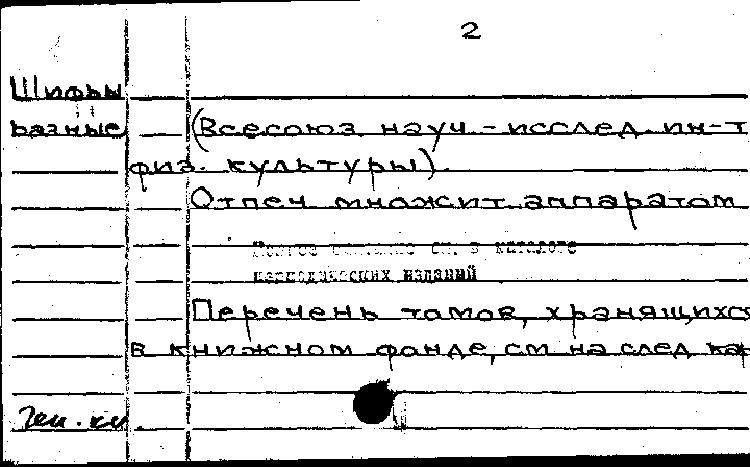 2
Шифры
разные (Всесоюз. науч.-исслед. ин-т
физ. культуры).
Отпеч. множит. аппаратом
см. в каталоге
периодических изданий
Перечень томов, хранящихся
в книжном фонде, см. на след. кар
Ген. кат.